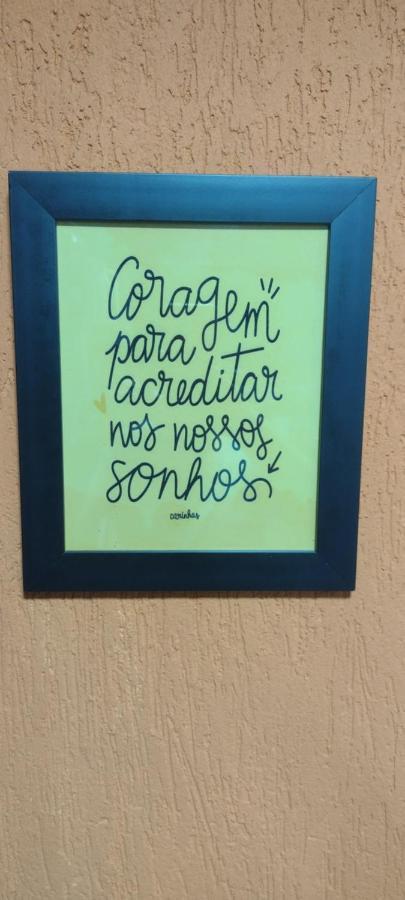 Coragem
para
acreditar
nos nossos
sonhos
carinhas